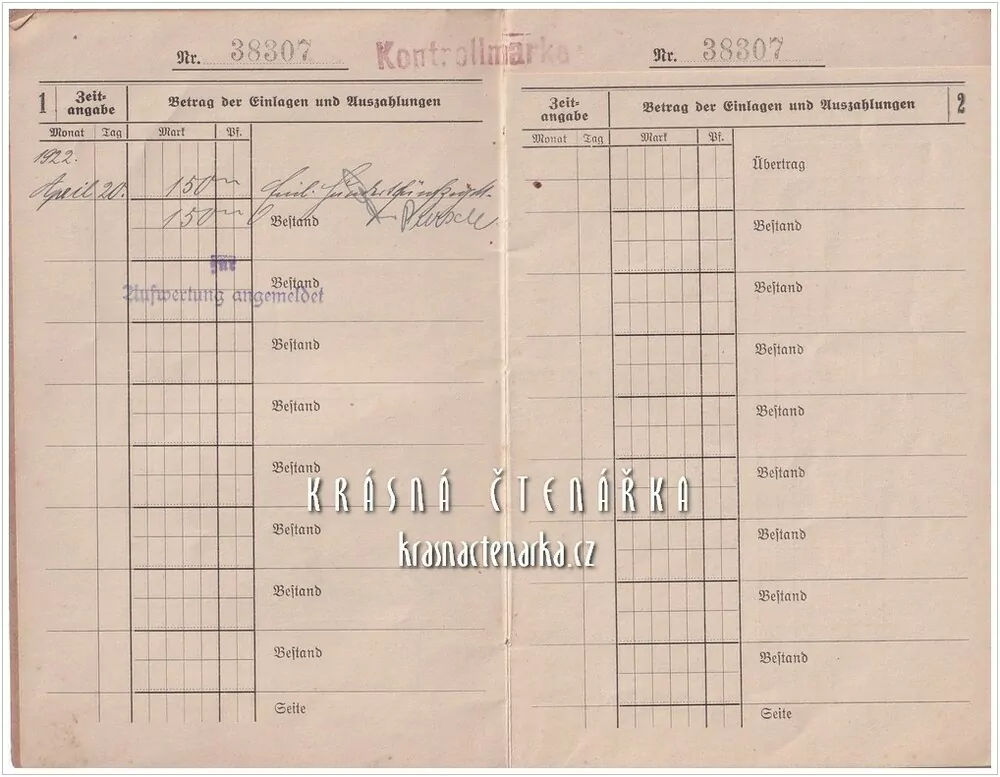 Nr. 38307
Kontrollmarke
1
Zeit-
angabe
Betrag der Einlagen und Auszahlungen
Monat Tag Mark Pf.
1922.
April 20. 150
150 Bestand
für
Aufwertung angemeldet
Bestand
Bestand
Bestand
Bestand
Bestand
Bestand
Bestand
Seite
Nr. 38307
Zeit-
angabe
Betrag der Einlagen und Auszahlungen
2
Monat Tag Mark Pf.
Übertrag
Bestand
Bestand
Bestand
Bestand
Bestand
Bestand
Bestand
Bestand
Seite
KRÁSNÁ ČTENÁŘKA
krasnactenarka.cz